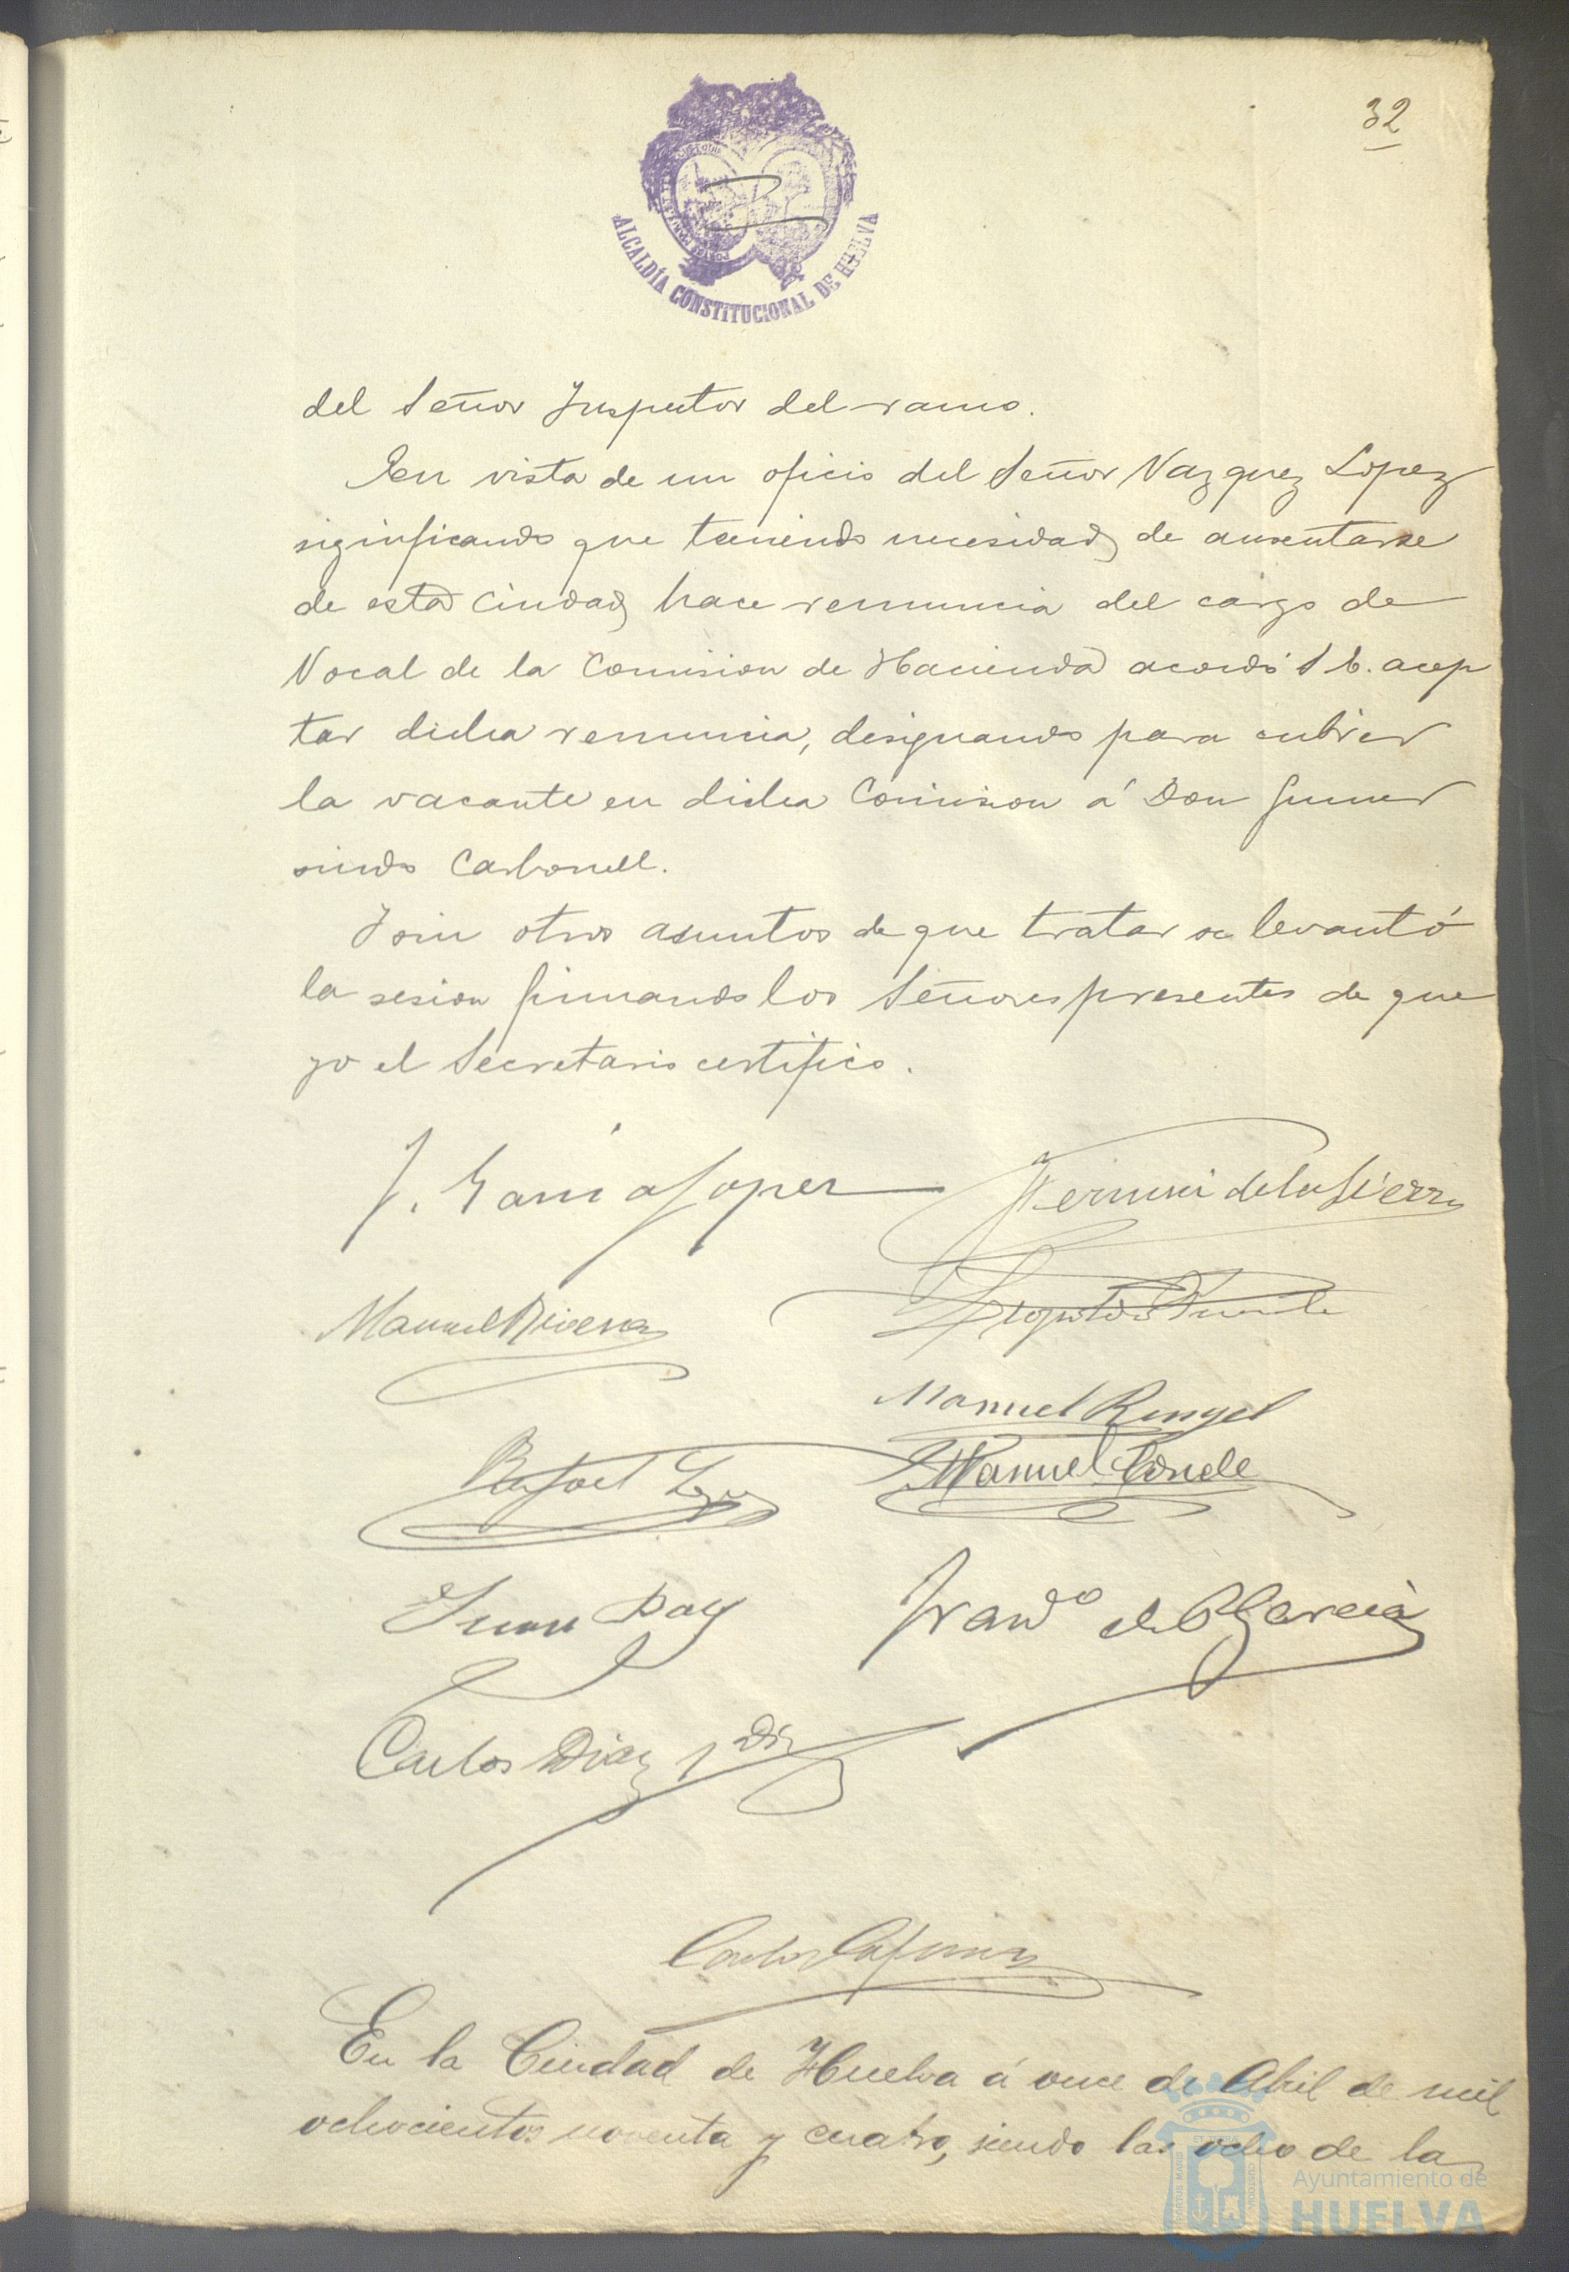 32
ALCALDÍA CONSTITUCIONAL DE HUELVA
del Señor Inspector del ramo.
En vista de un oficio del Señor Vazquez Lopez
siginficando que teniendo necesidad de ausentarse
de esta Ciudad hace renuncia del cargo de
Vocal de la Comision de Hacienda acordó S. E. acep
tar dicha renuncia, designando para cubrir
la vacante en dicha Comision á Don Gumer
sindo Carbonell.
Y sin otros asuntos de que tratar se levantó
la sesion firmando los Señores presentes de que
yo el Secretario certifico.
J. García Lopez
Fermin de la Sierra
Manuel Rivera
Leopoldo
Manuel Rengel
Rafael
Manuel Conde
Juan Day
Franco de P García
Carlos Diaz y
Carlos
En la Ciudad de Huelva á once de Abril de mil
ochocientos noventa y cuatro, siendo las ocho de la
Ayuntamiento de
HUELVA